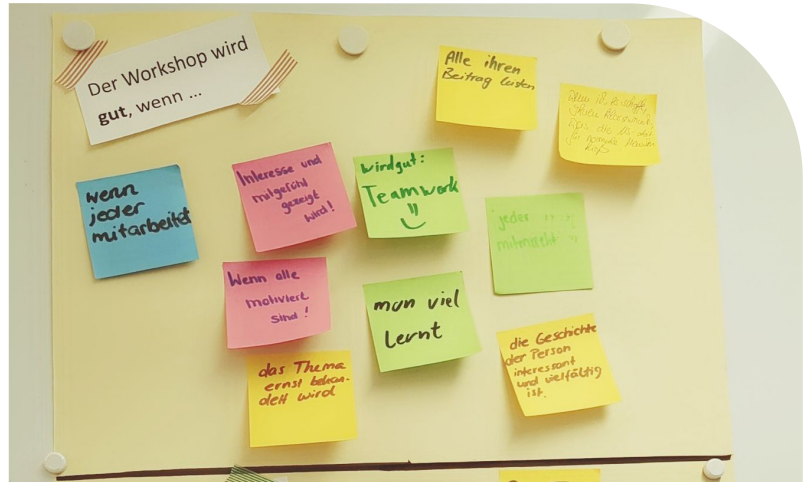 Der Workshop wird
gut, wenn ...
Alle ihren
Beitrag leisten
wenn
jeder
mitarbeitet
Interesse und
mitgefühl
gezeigt
wird!
wird gut:
Teamwork
jeder
mitmacht
Wenn alle
motiviert
sind!
man viel
lernt
das Thema
ernst behan-
delt wird
die Geschichte
der Person
interessant
und vielfältig
ist.